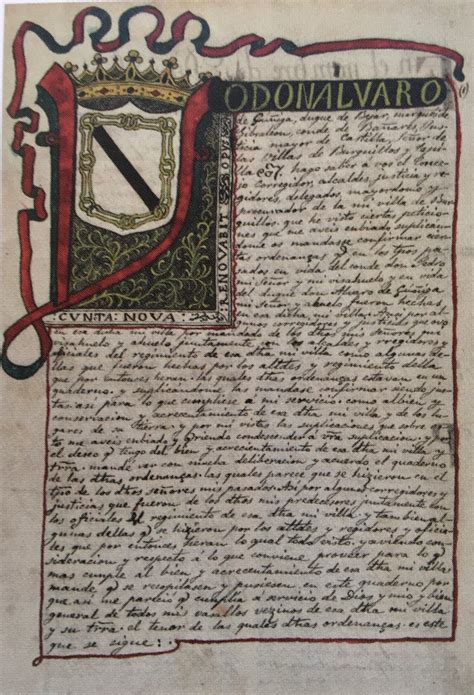 O DON ALVARO
de Çuñiga, duque de Bejar, marques de
Gibraleon, conde de Bañares, Jus-
ticia mayor de Castilla, señor de
las Villas de Burguillos y
hago saber a vos el Conce-
jo corregidor, alcaldes, justicia y re-
gidores, delegados, mayordomo y
procurador de la mi villa de Bur-
guillos. que he visto ciertas peticio-
nes que me aveis enbiado suplicando
me os mandasse confirmar cier-
tas ordenanzas en los tpos pa-
sados en vida del conde don Pedro
mi Señor y mi visahuelo y en vida
del duque don Alvaro de Çuñiga
mi Señor y abuelo fueron hechas,
en esa dicha mi villa, por al-
gunos corregidores y justicias que
RENOVABIT OPUS
CVNTA: NOVA:
en esa dicha mi villa por mandado de los dhos Señores, mi
visahuelo y abuelo juntamente con los alcaldes y rregidores y
oficiales del regimiento de esa dha mi villa como algunas de-
llas que fueron hechas por los alldes y regimiento della
que por entonces heran. las quales dhas ordenanças estavan en un
quaderno y suplicandome las mandase confirmar siendo jus-
tas asi para lo que cumpliese a mi servicio como al bien y
conservacion y acrecentamiento de esa dha mi villa y de los lu-
gares de su tierra y por mi vistas las suplicaciones que sobre es-
to me aveis enbiado y qriendo condescender a vra suplicacion, y por
el deseo q tengo del bien y acrecentamiento de esa dha mi villa y
trra. mande ver con mucha deliberacion y acuerdo el quaderno
de las dhas ordenanças las quales parece que se hizieron en el
tpo de los dhos señores mis pasados por algunos corregidores y
justicias que fueron de los dhos mis predecesores juntamente con
los oficiales del regimiento de esa dha mi villa, y tanbien al-
gunas dellas q se hizieron por los alldes y regidores y oficia-
les que por entonces heran lo qual todo visto, y aviendo con-
sideracion y respecto a lo que conviene proveer para lo q
mas cumple al bien y acrecentamiento de esa dha mi villa
mande, q se recopilasen y pusiesen en este quaderno por
que asi me parecio q cumplia a servicio de Dios y mio, y bien
general de todos mis vasallos vezinos de esa dha mi villa
y su trra. el tenor de las quales dhas ordenanças. es este
que se sigue:.